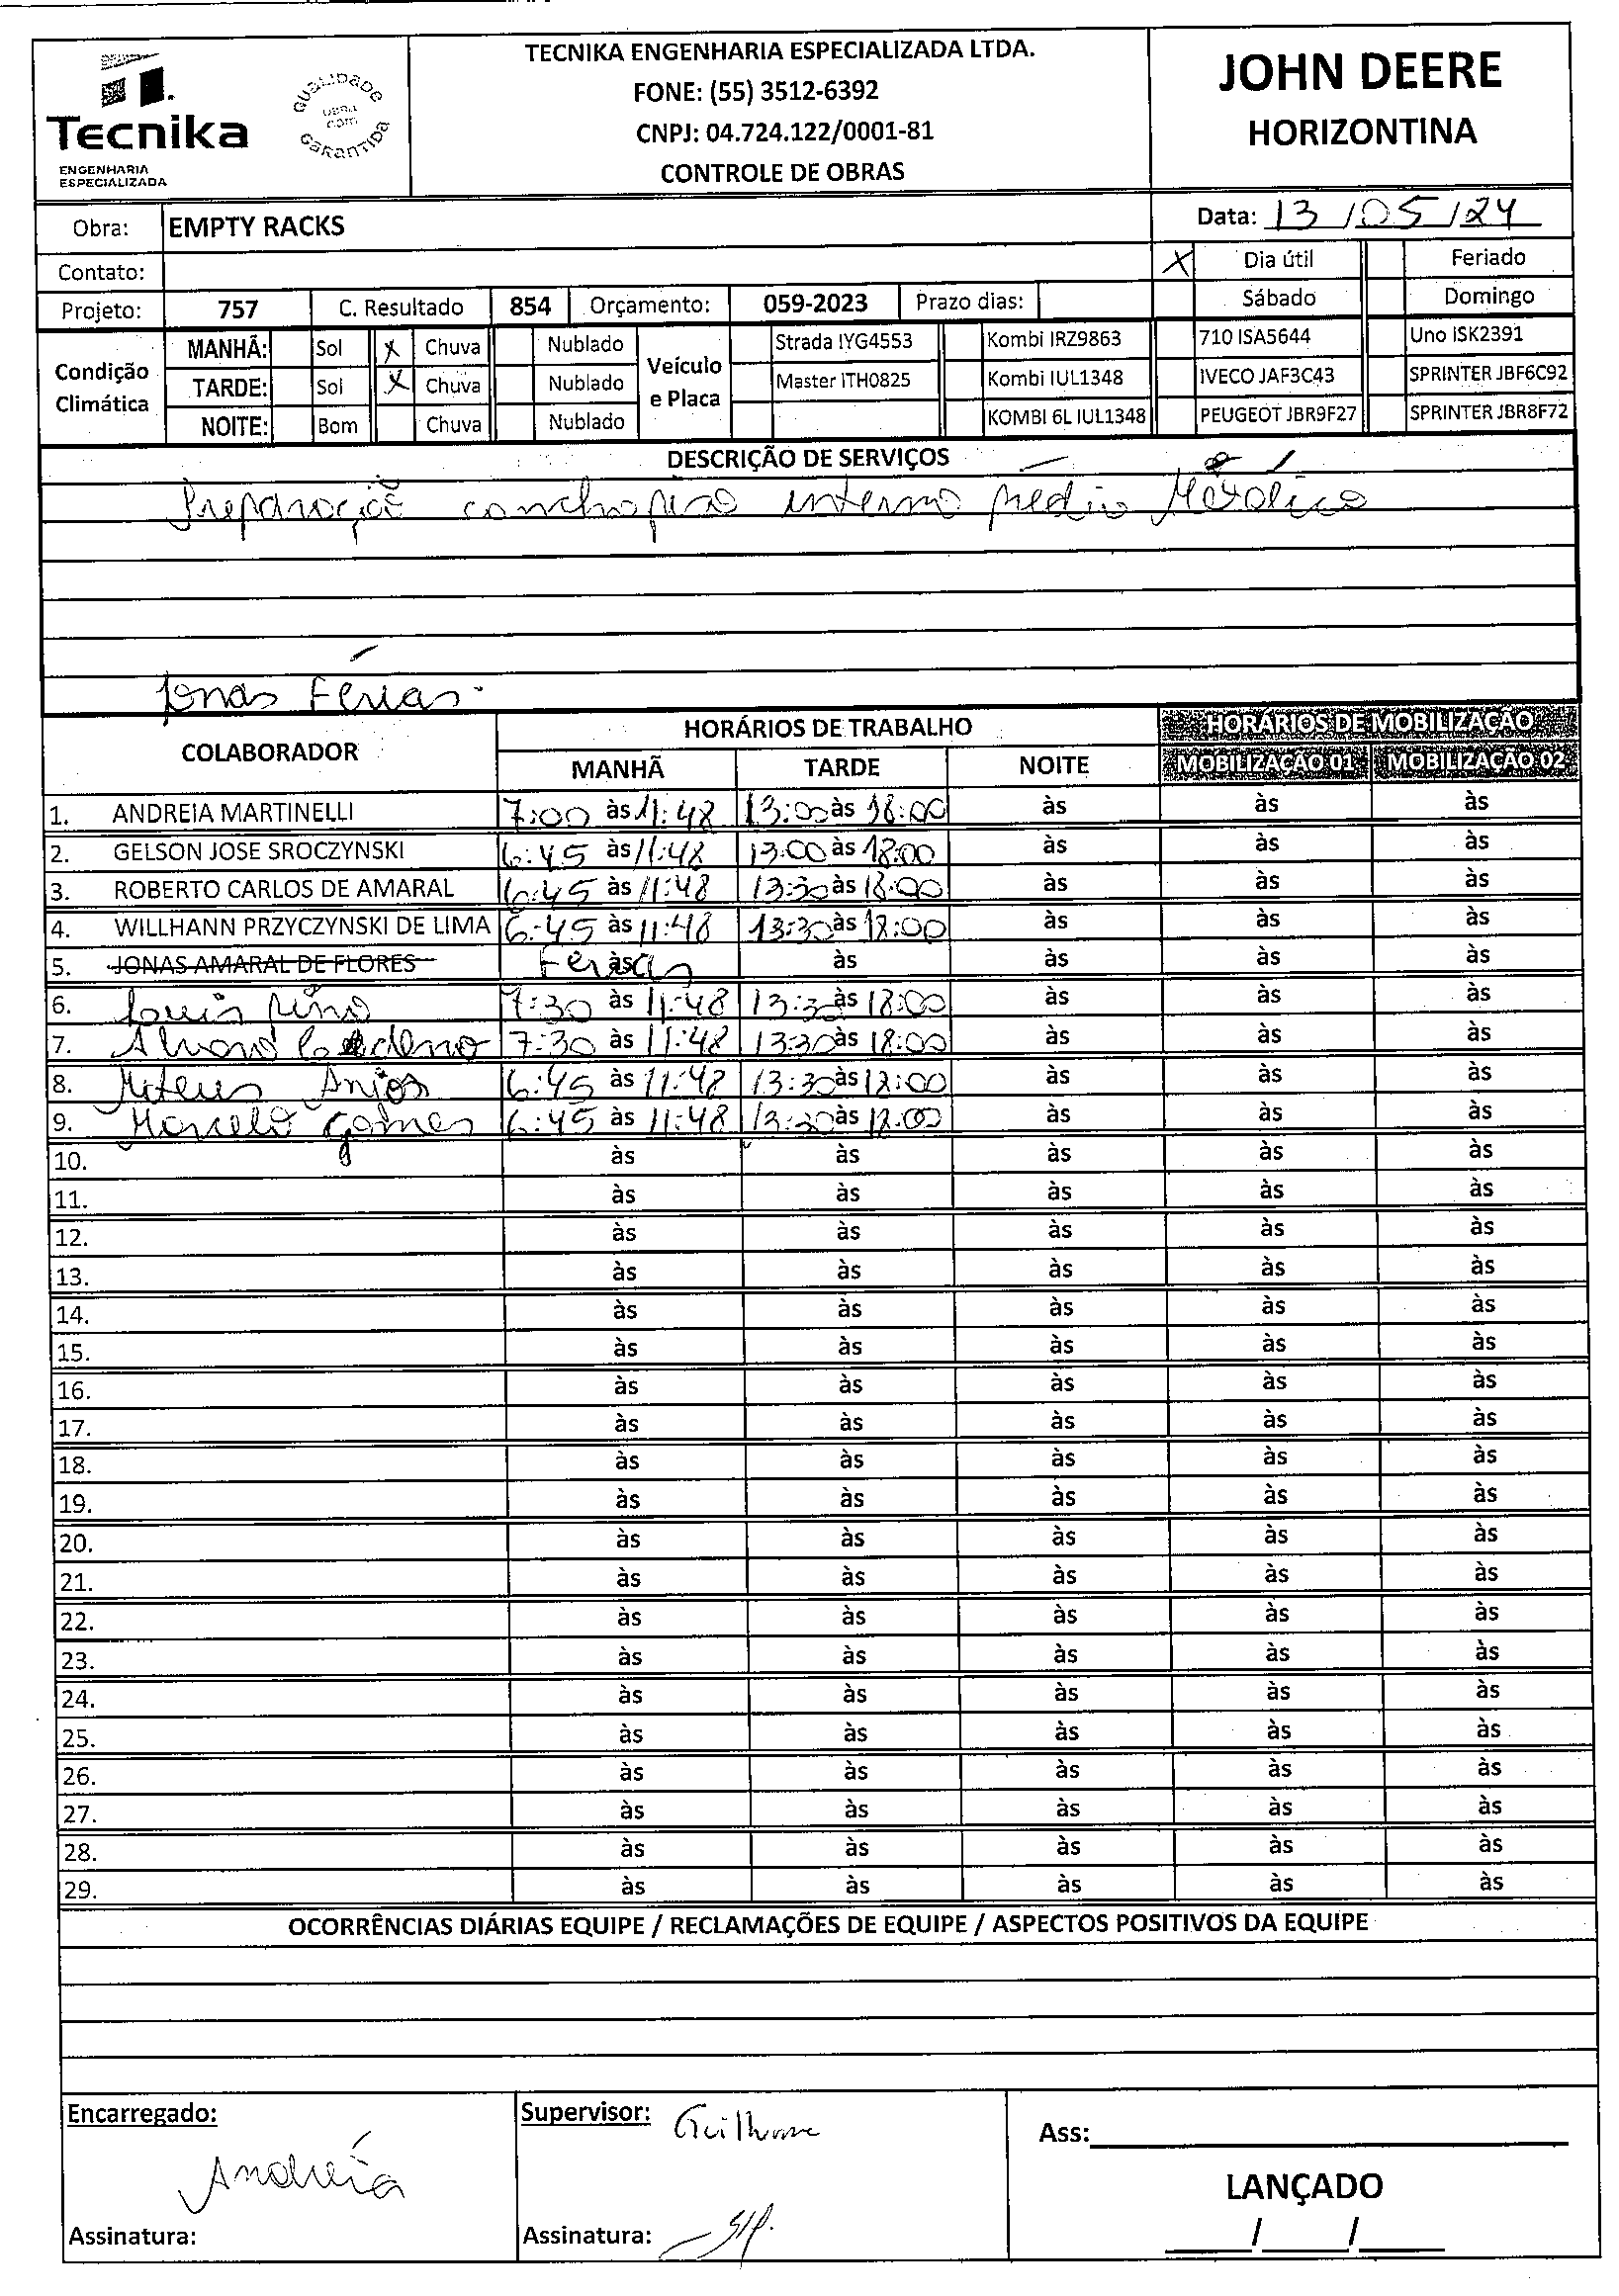 TECNIKA ENGENHARIA ESPECIALIZADA LTDA.
FONE: (55) 3512-6392
CNPJ: 04.724.122/0001-81
CONTROLE DE OBRAS
Tecnika
ENGENHARIA
ESPECIALIZADA
QUALIDADE
OBRA
COM
GARANTIDA
JOHN DEERE
HORIZONTINA
Obra: EMPTY RACKS
Data: 13/05/24
Contato:
X Dia útil Feriado
Projeto: 757 C. Resultado 854 Orçamento: 059-2023 Prazo dias:
Sábado Domingo
Condição Climática
MANHÃ: Sol X Chuva Nublado
TARDE: Sol X Chuva Nublado
NOITE: Bom Chuva Nublado
Veículo e Placa
Strada IYG4553 Kombi IRZ9863 710 ISA5644 Uno ISK2391
Master ITH0825 Kombi IUL1348 IVECO JAF3C43 SPRINTER JBF6C92
KOMBI 6L IUL1348 PEUGEOT JBR9F27 SPRINTER JBR8F72
DESCRIÇÃO DE SERVIÇOS
Preparação interno prédio Metálico
Jonas Férias.
COLABORADOR HORÁRIOS DE TRABALHO HORÁRIOS DE MOBILIZAÇÃO
MANHÃ TARDE NOITE MOBILIZAÇÃO 01 MOBILIZAÇÃO 02
1. ANDREIA MARTINELLI 7:00 às 11:48 13:00 às 18:00 às às às
2. GELSON JOSE SROCZYNSKI 6:45 às 11:48 13:00 às 18:00 às às às
3. ROBERTO CARLOS DE AMARAL 6:45 às 11:48 13:30 às 18:00 às às às
4. WILLHANN PRZYCZYNSKI DE LIMA 6:45 às 11:48 13:30 às 18:00 às às às
5. JONAS AMARAL DE FLORES Ferias às às às às às
6. Luis Pino 7:30 às 11:48 13:30 às 18:00 às às às
7. Alvaro Cedeno 7:30 às 11:48 13:30 às 18:00 às às às
8. Mateus Anjos 6:45 às 11:48 13:30 às 18:00 às às às
9. Marcelo Gomes 6:45 às 11:48 13:30 às 18:00 às às às
10. às às às às às
11. às às às às às
12. às às às às às
13. às às às às às
14. às às às às às
15. às às às às às
16. às às às às às
17. às às às às às
18. às às às às às
19. às às às às às
20. às às às às às
21. às às às às às
22. às às às às às
23. às às às às às
24. às às às às às
25. às às às às às
26. às às às às às
27. às às às às às
28. às às às às às
29. às às às às às
OCORRÊNCIAS DIÁRIAS EQUIPE / RECLAMAÇÕES DE EQUIPE / ASPECTOS POSITIVOS DA EQUIPE
Encarregado:
Andréia
Assinatura:
Supervisor: Guilherme
Assinatura:
Ass:
LANÇADO
/ /